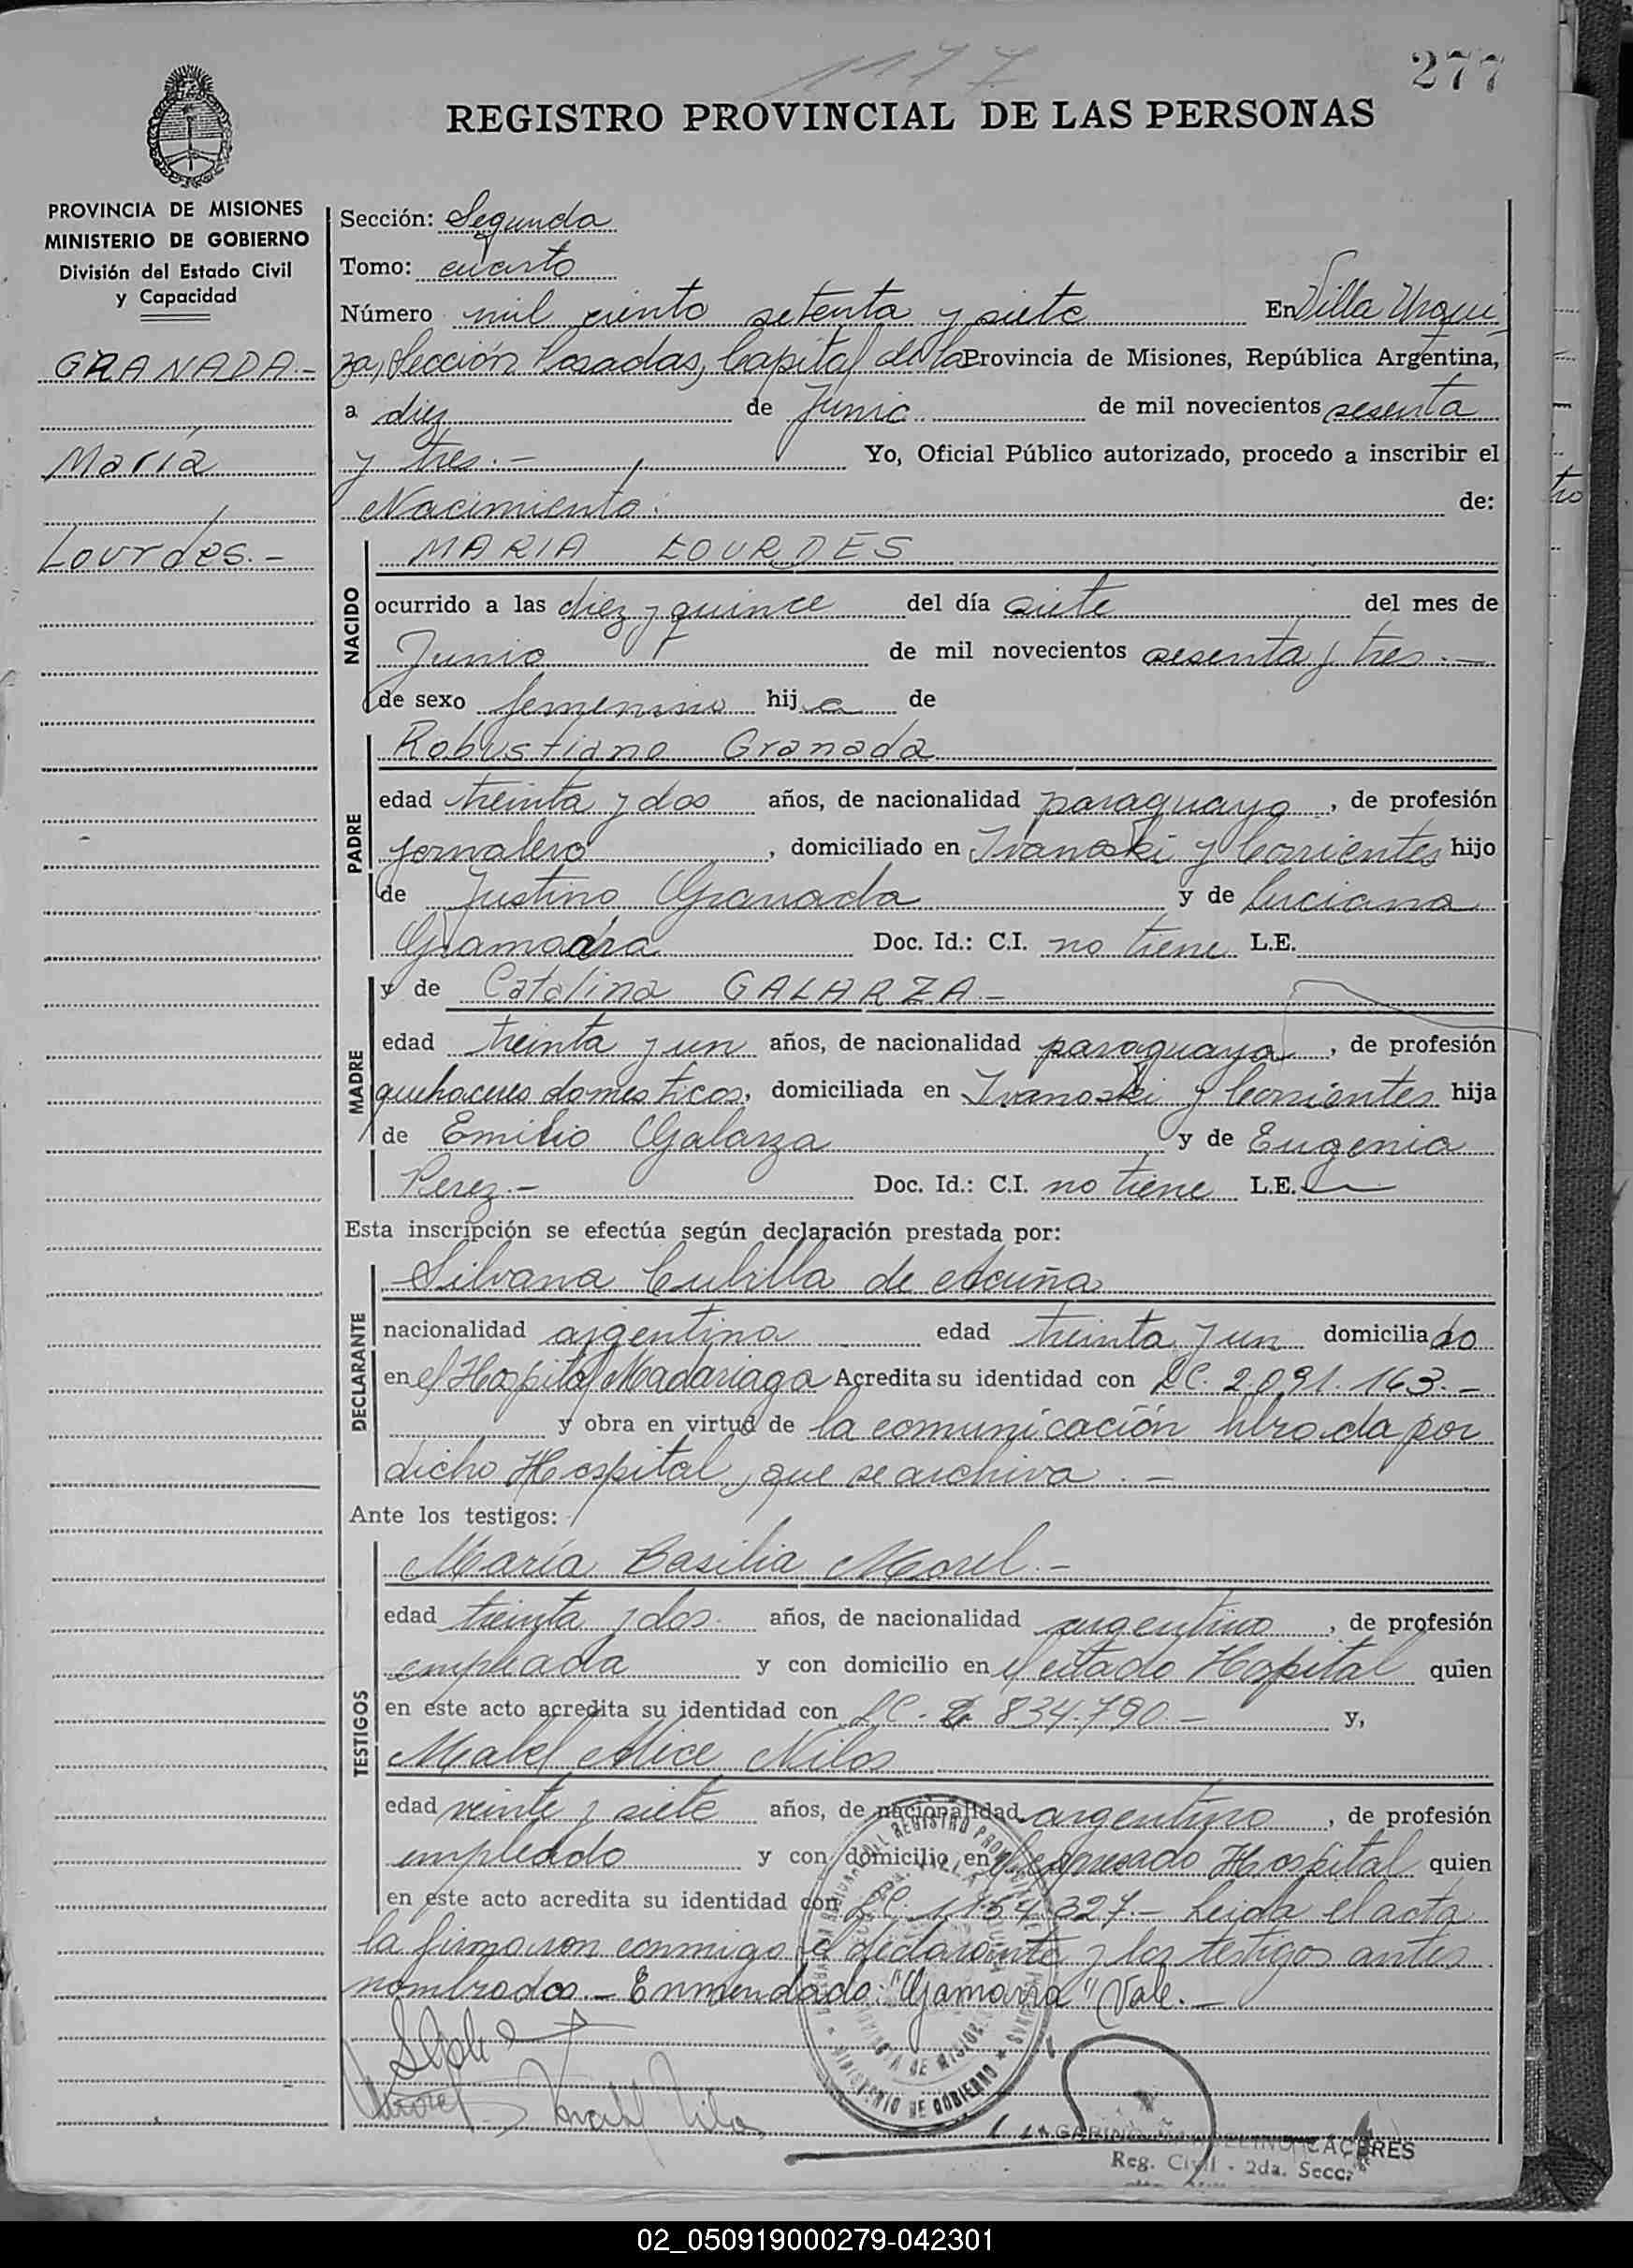 1177
277
REGISTRO PROVINCIAL DE LAS PERSONAS
PROVINCIA DE MISIONES
MINISTERIO DE GOBIERNO
División del Estado Civil
y Capacidad
GRANADA.-
María
Lourdes.-
Sección: Segunda
Tomo: cuarto
Número mil ciento setenta y siete En Villa Urqui
za, Sección Posadas, Capital de la Provincia de Misiones, República Argentina,
a diez de Junio de mil novecientos sesenta
y tres.- Yo, Oficial Público autorizado, procedo a inscribir el
Nacimiento: de:
NACIDO
MARIA LOURDES
ocurrido a las diez y quince del día siete del mes de
Junio de mil novecientos sesenta y tres.-
de sexo femenino hija de
PADRE
Robustiano Granada
edad treinta y dos años, de nacionalidad paraguayo, de profesión
jornalero, domiciliado en Ivanoski y Corrientes hijo
de Justino Granada y de Luciana
Gamarra Doc. Id.: C.I. no tiene L.E.
MADRE
y de Catalina GALARZA.-
edad treinta y un años, de nacionalidad paraguaya, de profesión
quehaceres domesticos, domiciliada en Ivanoski y Corrientes hija
de Emilio Galarza y de Eugenia
Perez.- Doc. Id.: C.I. no tiene L.E.
Esta inscripción se efectúa según declaración prestada por:
DECLARANTE
Silvana Cubilla de Acuña
nacionalidad argentina edad treinta y un domiciliado
en el Hospital Madariaga Acredita su identidad con LC. 2.091.163.-
y obra en virtud de la comunicación librada por
dicho Hospital, que se archiva.-
Ante los testigos:
TESTIGOS
María Basilia Morel.-
edad treinta y dos años, de nacionalidad argentino, de profesión
empleada y con domicilio en el citado Hospital quien
en este acto acredita su identidad con LC. 834.790.- y,
Mabel Alice Nilos
edad veinte y siete años, de nacionalidad argentino, de profesión
empleado y con domicilio en el expresado Hospital quien
en este acto acredita su identidad con LC. 1154.327.- Leida el acta
la firmaron conmigo el declarante y los testigos antes
nombrados.- Enmendado: "Gamarra" Vale.-
MINISTERIO DE GOBIERNO
CACERES
Reg. Civil - 2da. Secc.
02_050919000279-042301